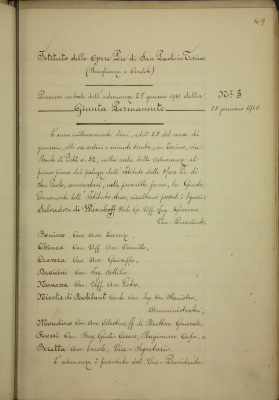 49
Istituto delle Opere Pie di San Paolo in Torino
(Beneficenza e Credito)
Processo verbale dell'adunanza 28 gennaio 1910 della
Giunta Permanente
N.° 3
28 gennaio 1910
L'anno millenovecento dieci, addì 28 del mese di
gennaio, alle ore sedici e minuti trenta, in Torino, via
Monte di Pietà n. 32, nella sala delle adunanze al
piano primo del palazzo dell'Istituto delle Opere Pie di
San Paolo, convocatasi, nelle prescritte forme, la Giunta
Permanente dell'Istituto stesso, risultano presenti i Signori:
Uff. Ing.
Vice-Presidente
Cav. Avv.
Cav. Uff. Avv. Camillo,
Cravera Cav. Avv. Giuseppe,
Cav. Ing. Attilio,
Cav. Uff. Avv. Pietro,
Nicolis di Robilant Conte Cav. Ing.
Amministratori,
Cav. Avv. Celestino, ff. di Direttore Generale,
Cav. Rag. Giulio Cesare, Ragioniere Capo, e
Beretta Avv. Ercole, Vice-Segretario.
L'adunanza è presieduta dal Vice-Presidente